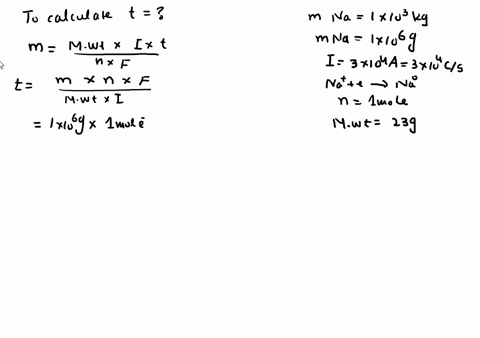 To calculate t = ?
m = M.wt x I x t / n x F
t = m x n x F / M.wt x I
= 1x10⁶g x 1mole
m Na = 1x10³ kg
m Na = 1x10⁶ g
I = 3x10⁴A = 3x10⁴ C/s
Na⁺+e → Na⁰
n = 1mole
M.wt = 23g